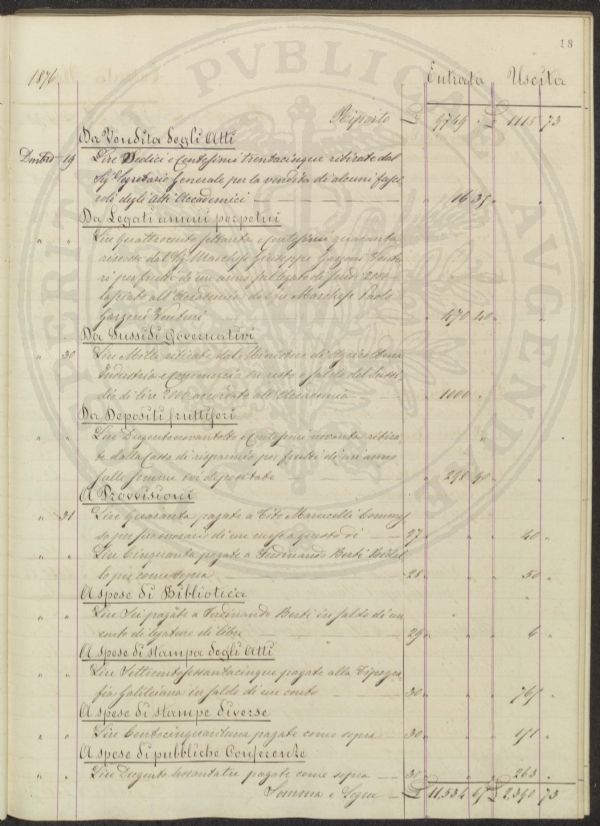 18
1876 Entrata Uscita
Riporto £ 9749 " £ 1115 73
Da Vendita degli Atti
Dicembre 19 Lire Sedici e Centesimi trentacinque ritirate dal
Sig.r Segretario Generale per la vendita di alcuni fasci
coli degli Atti Accademici 16 35 "
Da Legati annui perpetui
" " Lire Quattrocento settanta e centesimi quaranta
riscosse dal Sig. Marchese Giuseppe Garzoni Ventu
ri per frutti di un anno sul legato di scudi 2000
lasciato all'Accademia dal Marchese Paolo
Garzoni Venturi 470 40 "
Da Sussidi Governativi
" 30 Lire Mille ritirate dal Ministero di Agricoltura
Industria e Commercio in resto e saldo del Sussi
dio di lire 2000 accordato all'Accademia 1000 " "
Da Depositi fruttiferi
" " Lire Dugentonovantotto e Centesimi novanta ritira
te dalla Cassa di risparmio per frutti di un anno
sulle somme ivi depositate 298 90 "
A Provvisioni
" 31 Lire Quaranta pagate a Tito Marucelli Commes
so per onorario di un mese a questo dì 27 " " 40 "
" " Lire Cinquanta pagate a Ferdinando Berti Bidel
lo per come sopra 28 " " 50 "
A spese di Biblioteca
" " Lire Sei pagate a Ferdinando Berti in saldo di un
conto di legature di libri 29 " " 6 "
A spese di stampa degli Atti
" " Lire Settecentosessantacinque pagate alla Tipogra
fia Galileiana in saldo di un conto 30 " " 765 "
A spese di stampe diverse
" " Lire Centocinquantuna pagate come sopra 30 " " 151 "
A spese di pubbliche Conferenze
" " Lire Dugento sessantatre pagate come sopra 30 " " 263 "
Somma e Segue £ 11534 65 £ 2390 73